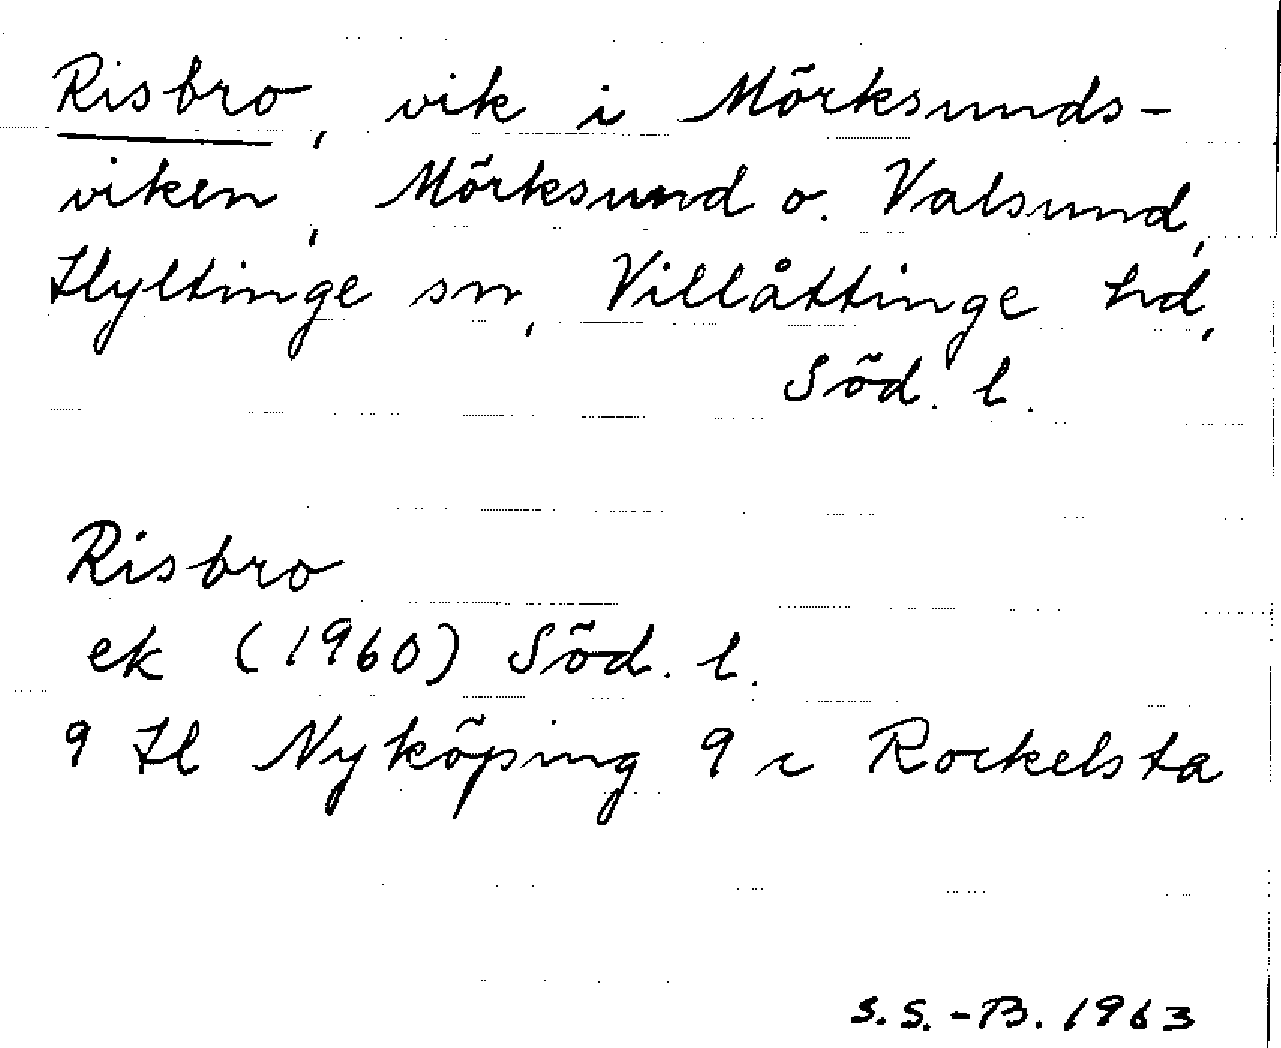 Risbro, vik i Mörksunds-
viken, Mörksund o. Valsund,
Hyltinge sn, Villåttinge hd,
Söd. l.
Risbro
ek (1960) Söd. l.
9 H Nyköping 9 c Rockelsta
S.S.-B. 1963